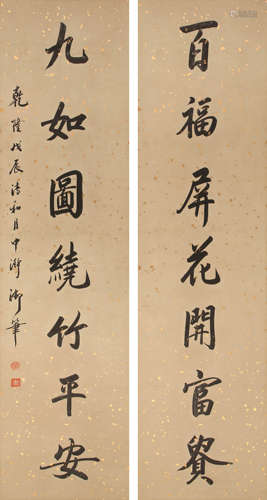 百福屏花開富貴
九如圖繞竹平安
乾隆戊辰清和月中澣御筆